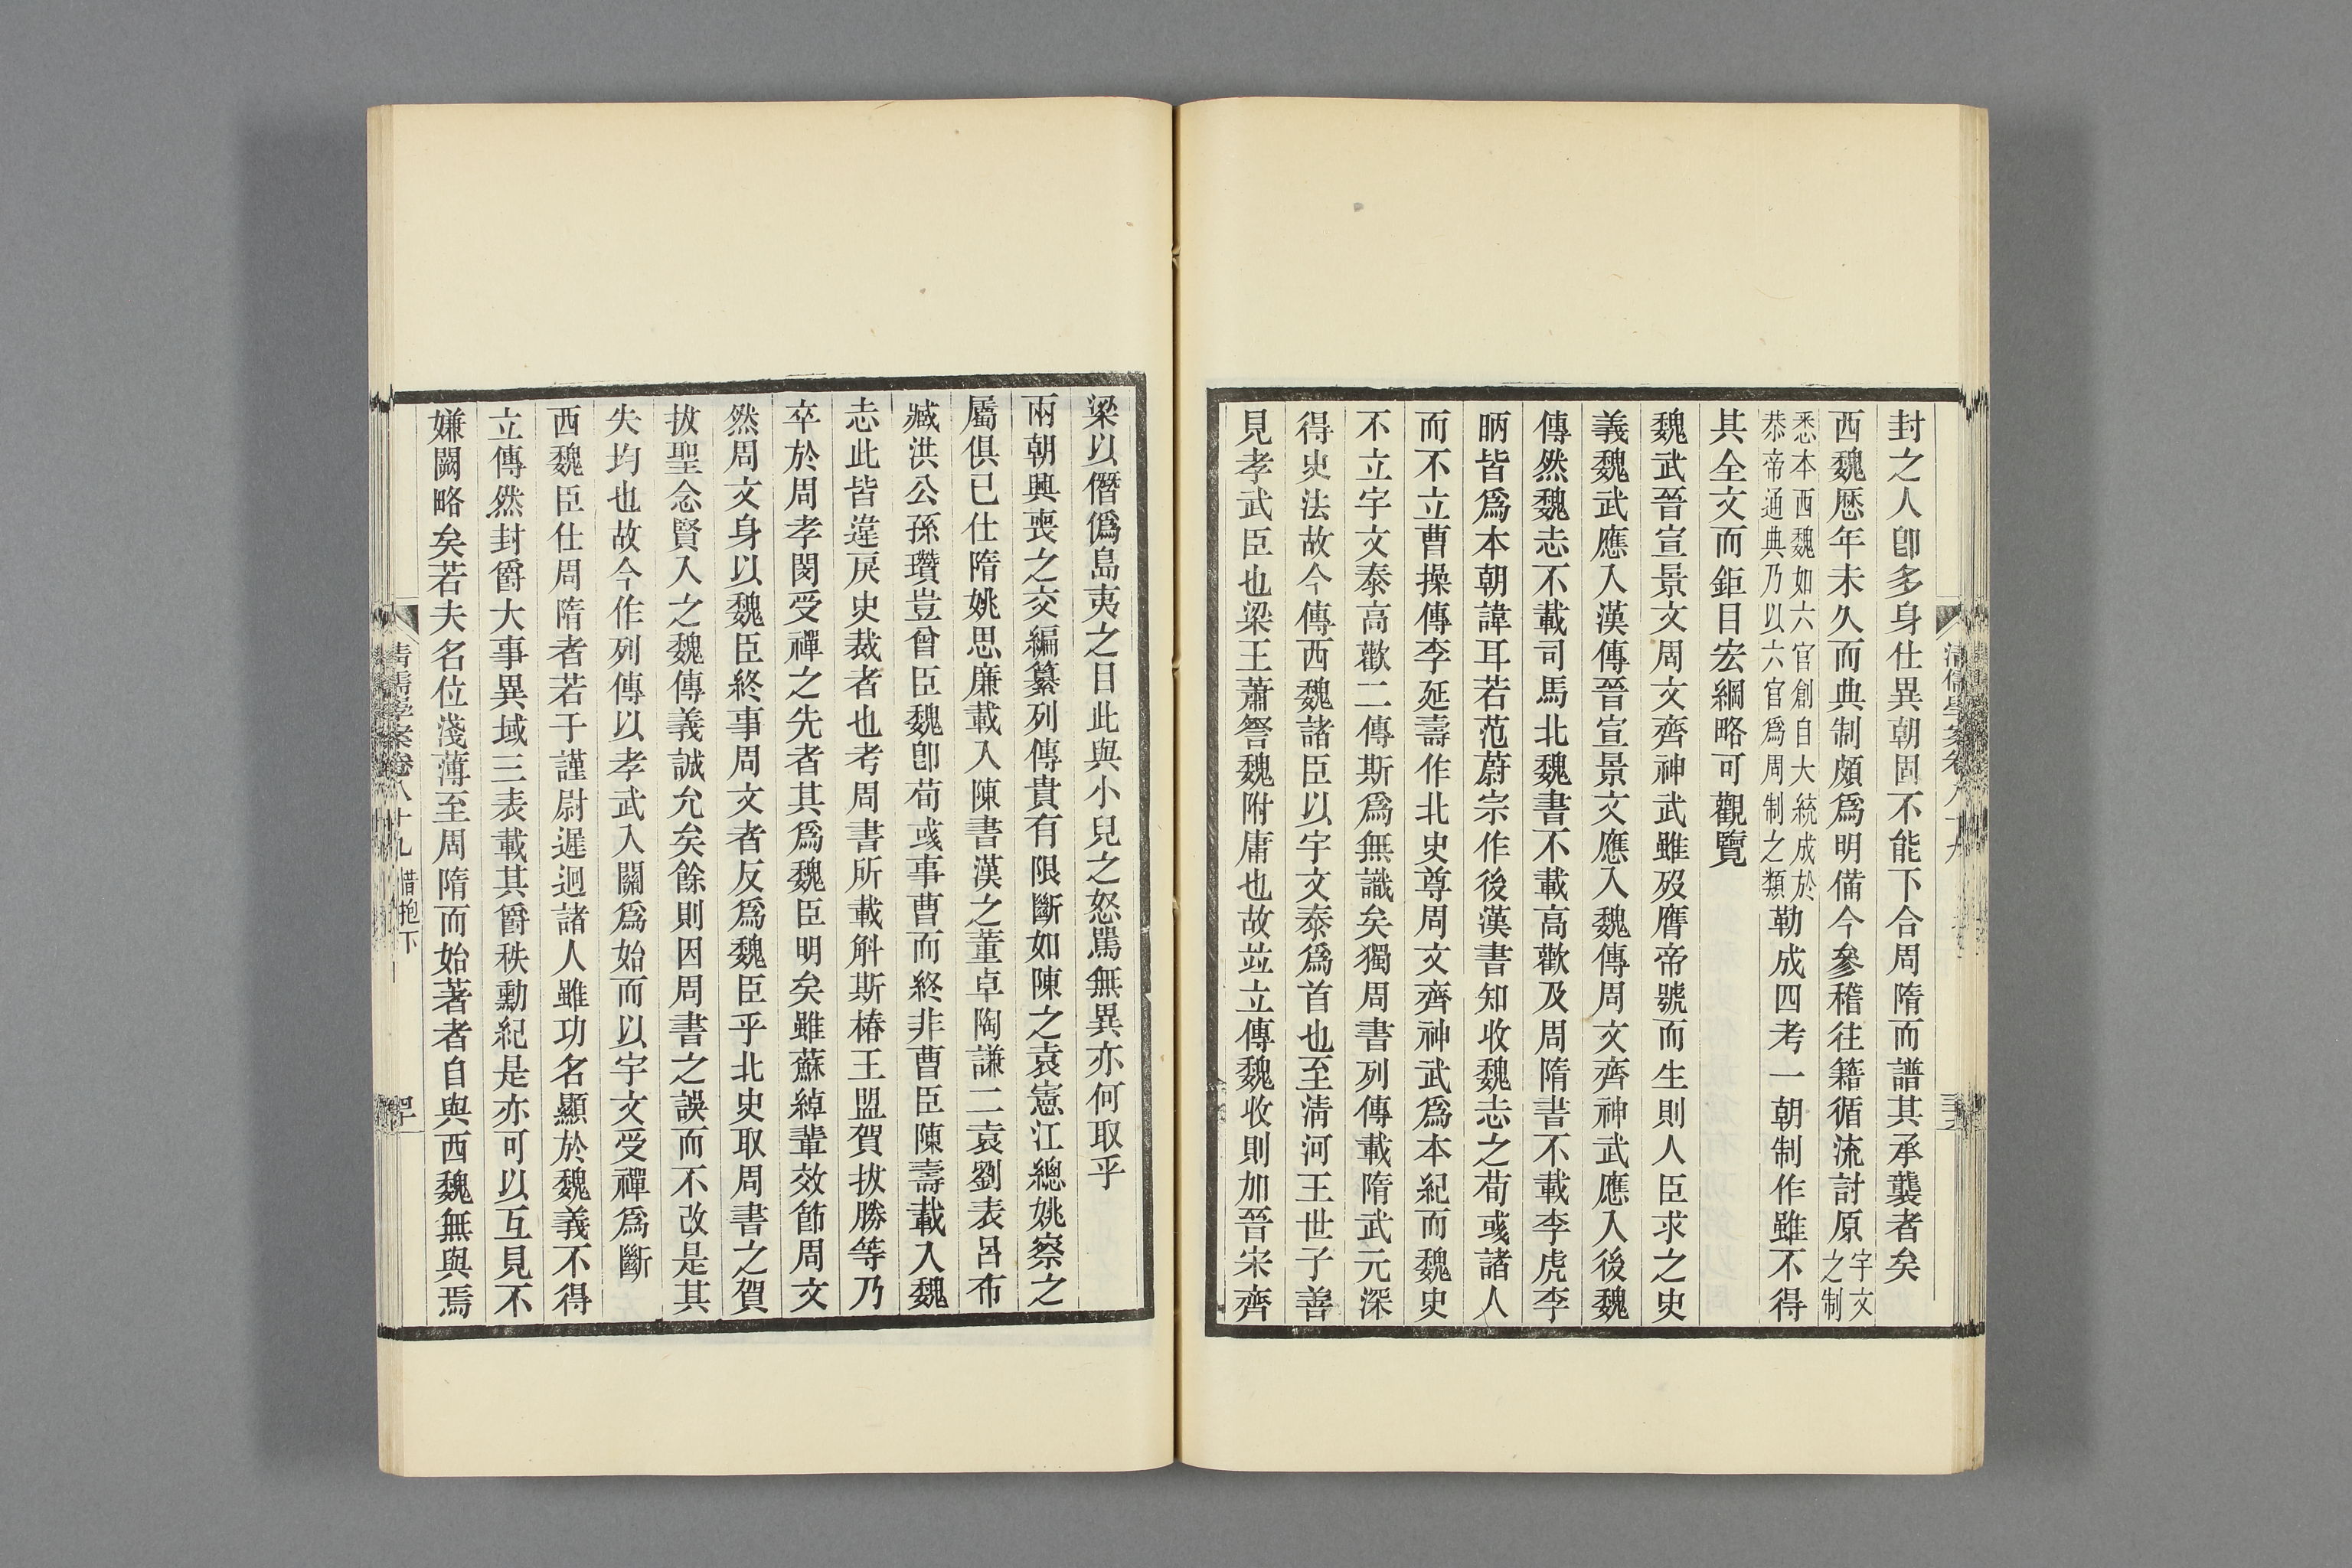 封之人卽多身仕異朝固不能下合周隋而譜其承襲者矣
西魏歷年未久而典制頗爲明備今參稽往籍循流討原宇文之制
悉本西魏如六官創自大統成於恭帝通典乃以六官爲周制之類勒成四考一朝制作雖不得
其全文而鉅目宏綱略可觀覽
魏武晉宣景文周文齊神武雖歿膺帝號而生則人臣求之史
義魏武應入漢傳晉宣景文應入魏傳周文齊神武應入後魏
傳然魏志不載司馬北魏書不載高歡及周隋書不載李虎李
昞皆爲本朝諱耳若范蔚宗作後漢書知收魏志之荀彧諸人
而不立曹操傳李延壽作北史尊周文齊神武爲本紀而魏史
不立宇文泰高歡二傳斯爲無識矣獨周書列傳載隋武元深
得史法故今傳西魏諸臣以宇文泰爲首也至淸河王世子善
見孝武臣也梁王蕭詧魏附庸也故竝立傳魏收則加晉宋齊
梁以僭僞島夷之目此與小兒之怒駡無異亦何取乎
兩朝興喪之交編纂列傳貴有限斷如陳之袁憲江總姚察之
屬俱已仕隋姚思廉載入陳書漢之董卓陶謙二袁劉表呂布
臧洪公孫瓚豈曾臣魏卽荀彧事曹而終非曹臣陳壽載入魏
志此皆違戾史裁者也考周書所載斛斯椿王盟賀拔勝等乃
卒於周孝閔受禪之先者其爲魏臣明矣雖蘇綽輩效節周文
然周文身以魏臣終事周文者反爲魏臣乎北史取周書之賀
拔聖念賢入之魏傳義誠允矣餘則因周書之誤而不改是其
失均也故今作列傳以孝武入關爲始而以宇文受禪爲斷
西魏臣仕周隋者若于謹尉遲迥諸人雖功名顯於魏義不得
立傳然封爵大事異域三表載其爵秩勳紀是亦可以互見不
嫌闕略矣若夫名位淺薄至周隋而始著者自與西魏無與焉
淸儒學案卷八十九 惜抱下